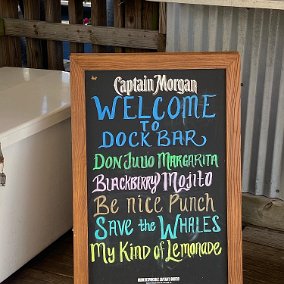 Captain Morgan
WELCOME
TO
DOCK BAR
DON JULIO MARGARITA
BLACKBERRY MOJITO
Be nice Punch
SAVE the WHALES
My Kind of Lemonade